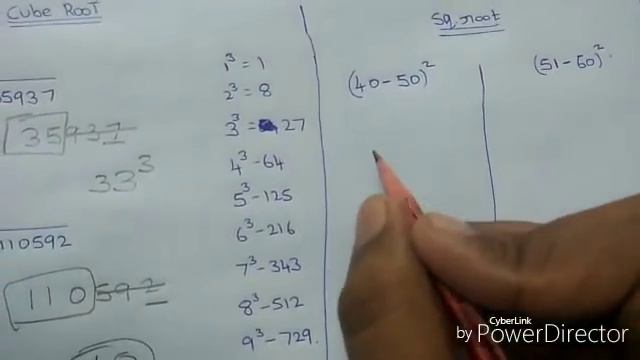 Cube RooT
5937
35937
33³
110592
110592
1³ = 1
2³ = 8
3³ = 27
4³ - 64
5³ - 125
6³ - 216
7³ - 343
8³ - 512
9³ - 729.
Sq. root
(40-50)²
(51-60)².
CyberLink
by PowerDirector